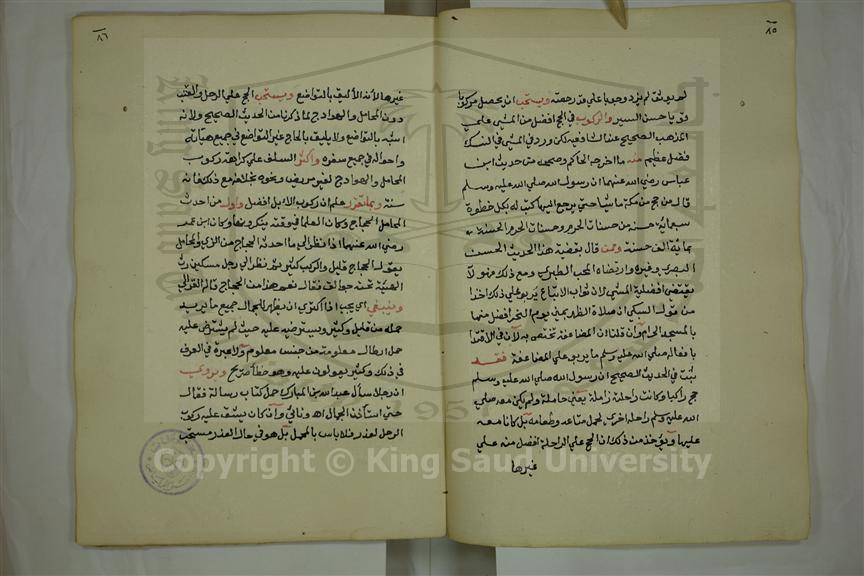 ٨٥
لم يوثق لم يزد وجوبا على قدر حصته ويستحب ان يحصل مركوبا
قويا حسن السير والركوب في الحج افضل من المشي على
المذهب الصحيح عندالشافعية لكن ورد في المشي في النسك
فضل عظيم منه ما اخرجه الحاكم وصححه من حديث ابن
عباس رضي الله عنهما ان رسول الله صلى الله عليه وسلم
قال من حج من مكة ماشيا حتى يرجع اليها كتب له بكل خطوة
سبعماية حسنة من حسنات الحرم وحسنات الحرم الحسنة
بماية الف حسنة وممن قال بقضية هذا الحديث الحسن
البصري وغيره وارتضاه المحب الطبري ومع ذلك فهو لا
يقتضي افضلية المشي لان ثواب الاتباع يربو على ذلك اخذا
من قول السبكي ان صلاة الظهر بمنى يوم النحر افضل منها
بالمسجد الحرام وان قلنا ان المضاعفة تختص به لان في الاقتدا
بافعاله صلى الله عليه وسلم ما يربو على المضاعفة فقد
ثبت في الحديث الصحيح ان رسول الله صلى الله عليه وسلم
حج راكبا وكانت راحلته زاملة يعني حاملة ولم يكن معه صلى
الله عليه وسلم راحلة اخرى لحمل متاعه وطعامه بل كانا معه
عليها ويؤخذ من ذلك ان الحج على الراحلة افضل منه على
غيرها
٨٦
غيرها لانه الأليق بالتواضع ويستحب الحج على الرحل والقتب
دون المحامل والهوادج لما ذكرنا من الحديث الصحيح ولانه
اشبه بالتواضع ولا يليق بالحاج غير التواضع في جميع هيآته
واحواله في جميع سفره واكثر السلف على كراهة ركوب
المحامل والهوادج لغير مريض ونحوه بخلافه مع ذلك فانه
سنة وبما تقرر علم ان ركوب الابل افضل واول من احدث
المحامل الحجاج وكان العلما في وقته ينكرونها وكان ابن عمر
رضي الله عنهما اذا نظر الى ما احدثه الحجاج من الزي والمحامل
يقول الحاج قليل والركب كثير ثم نظر الى رجل مسكين رث
الهيئة تحته جوالق فقال نعم هذا من الحجاج قال الغزالي
وينبغي اي يجب اذا اكترى ان يظهر للجمال جميع ما يريد
حمله من قليل وكثير ويسترضيه عليه حيث لم يشترض عليه
حمل ارطال معلومة من جنس معلوم ولا عبرة في العرف
في ذلك وكثير يعولون عليه وهو خطأ صريح ويروى
ان رجلا سأل عبد الله بن المبارك حمل كتاب رسالة فقال
حتى استأذن الجمال اهـ وان كان يشق عليه ركوب
الرحل لعذر فلا باس بالمحمل بل هو في حال العذر مستحب
Copyright © King Saud University